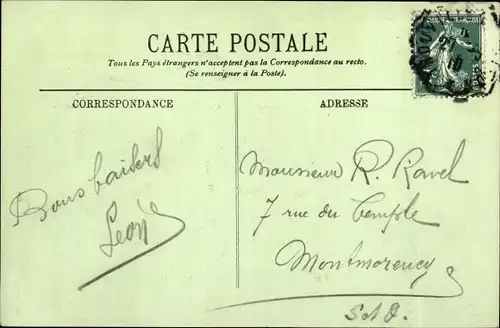 CARTE POSTALE
Tous les Pays étrangers n'acceptent pas la Correspondance au recto.
(Se renseigner à la Poste).
CORRESPONDANCE
ADRESSE
Bons baisers
Leon
Monsieur R. Ravel
7 rue du Temple
Montmorency
S&O.